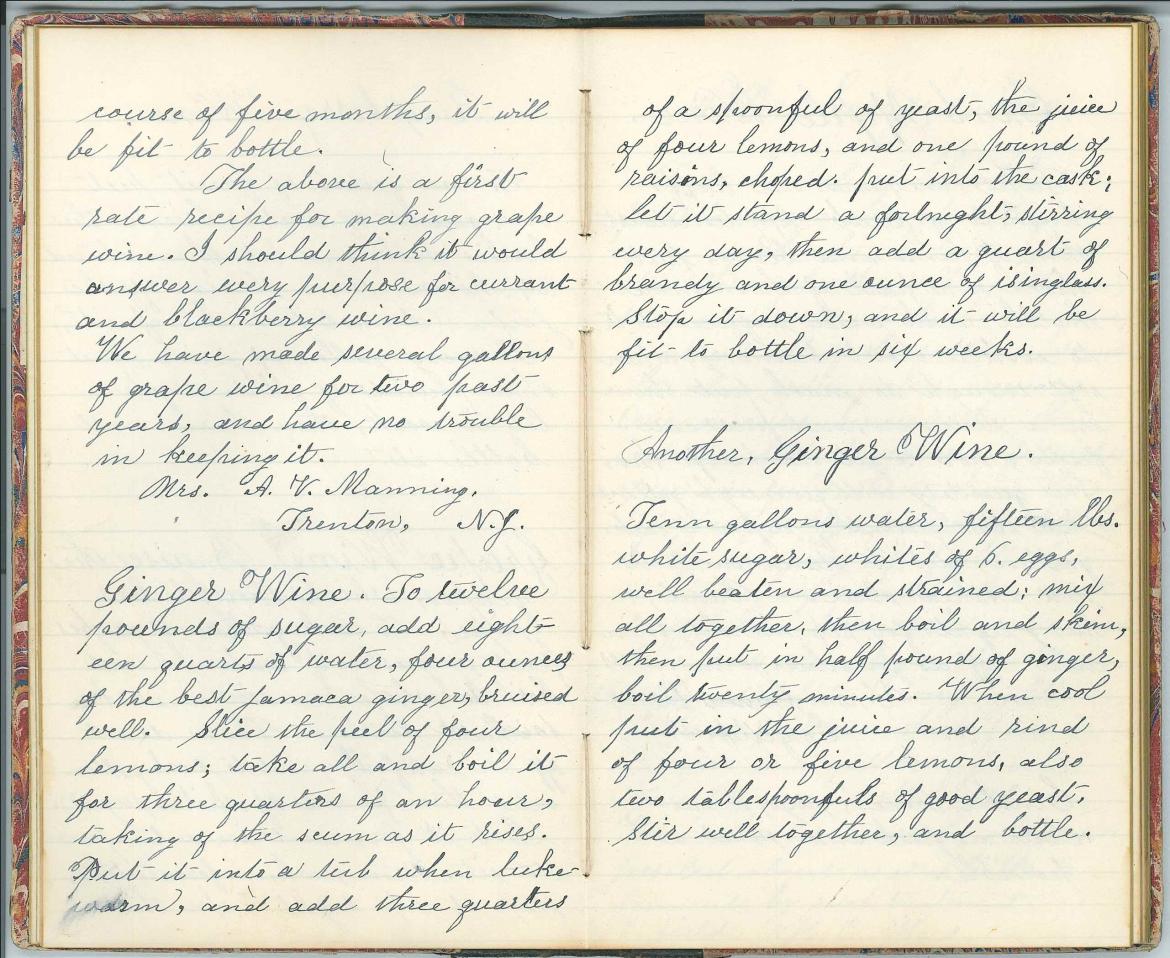 course of five months, it will
be fit to bottle.
The above is a first
rate recipe for making grape
wine. I should think it would
answer every purpose for currant
and blackberry wine.
We have made several gallons
of grape wine for two past
years, and have no trouble
in keeping it.
Mrs. A. V. Manning.
Trenton, N.J.
Ginger Wine. To twelve
pounds of sugar, add eight-
een quarts of water, four ounces
of the best Jamaca ginger, bruised
well. Slice the peel of four
lemons; take all and boil it
for three quarters of an hour,
taking of the scum as it rises.
Put it into a tub when luke-
warm, and add three quarters
of a spoonful of yeast, the juice
of four lemons, and one pound of
raisins, choped. put into the cask;
let it stand a fortnight, stirring
every day, then add a quart of
brandy and one ounce of isinglass.
Stop it down, and it will be
fit to bottle in six weeks.
Another, Ginger Wine.
Tenn gallons water, fifteen lbs.
white sugar, whites of 6. eggs,
well beaten and strained; mix
all together, then boil and skim,
then put in half pound of ginger,
boil twenty minutes. When cool
put in the juice and rind
of four or five lemons, also
two tablespoonfuls of good yeast.
Stir well together, and bottle.